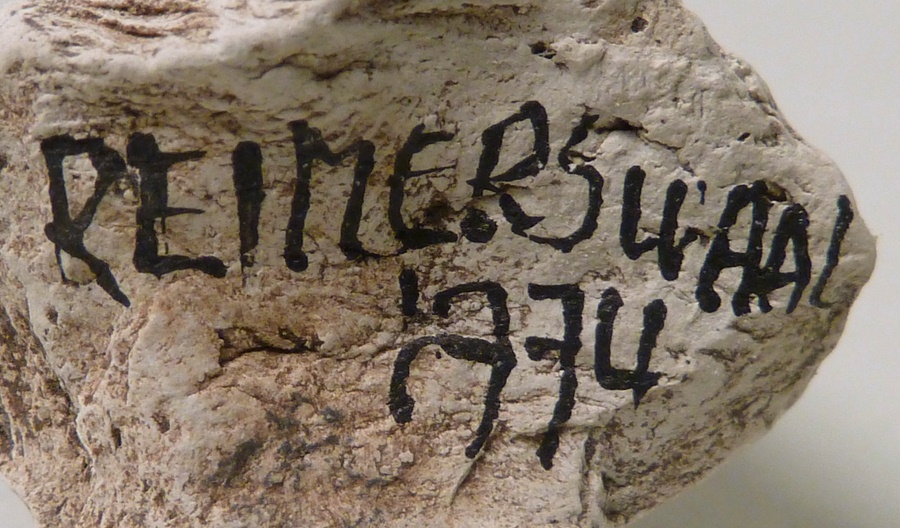 REIMERSWAAL
'974